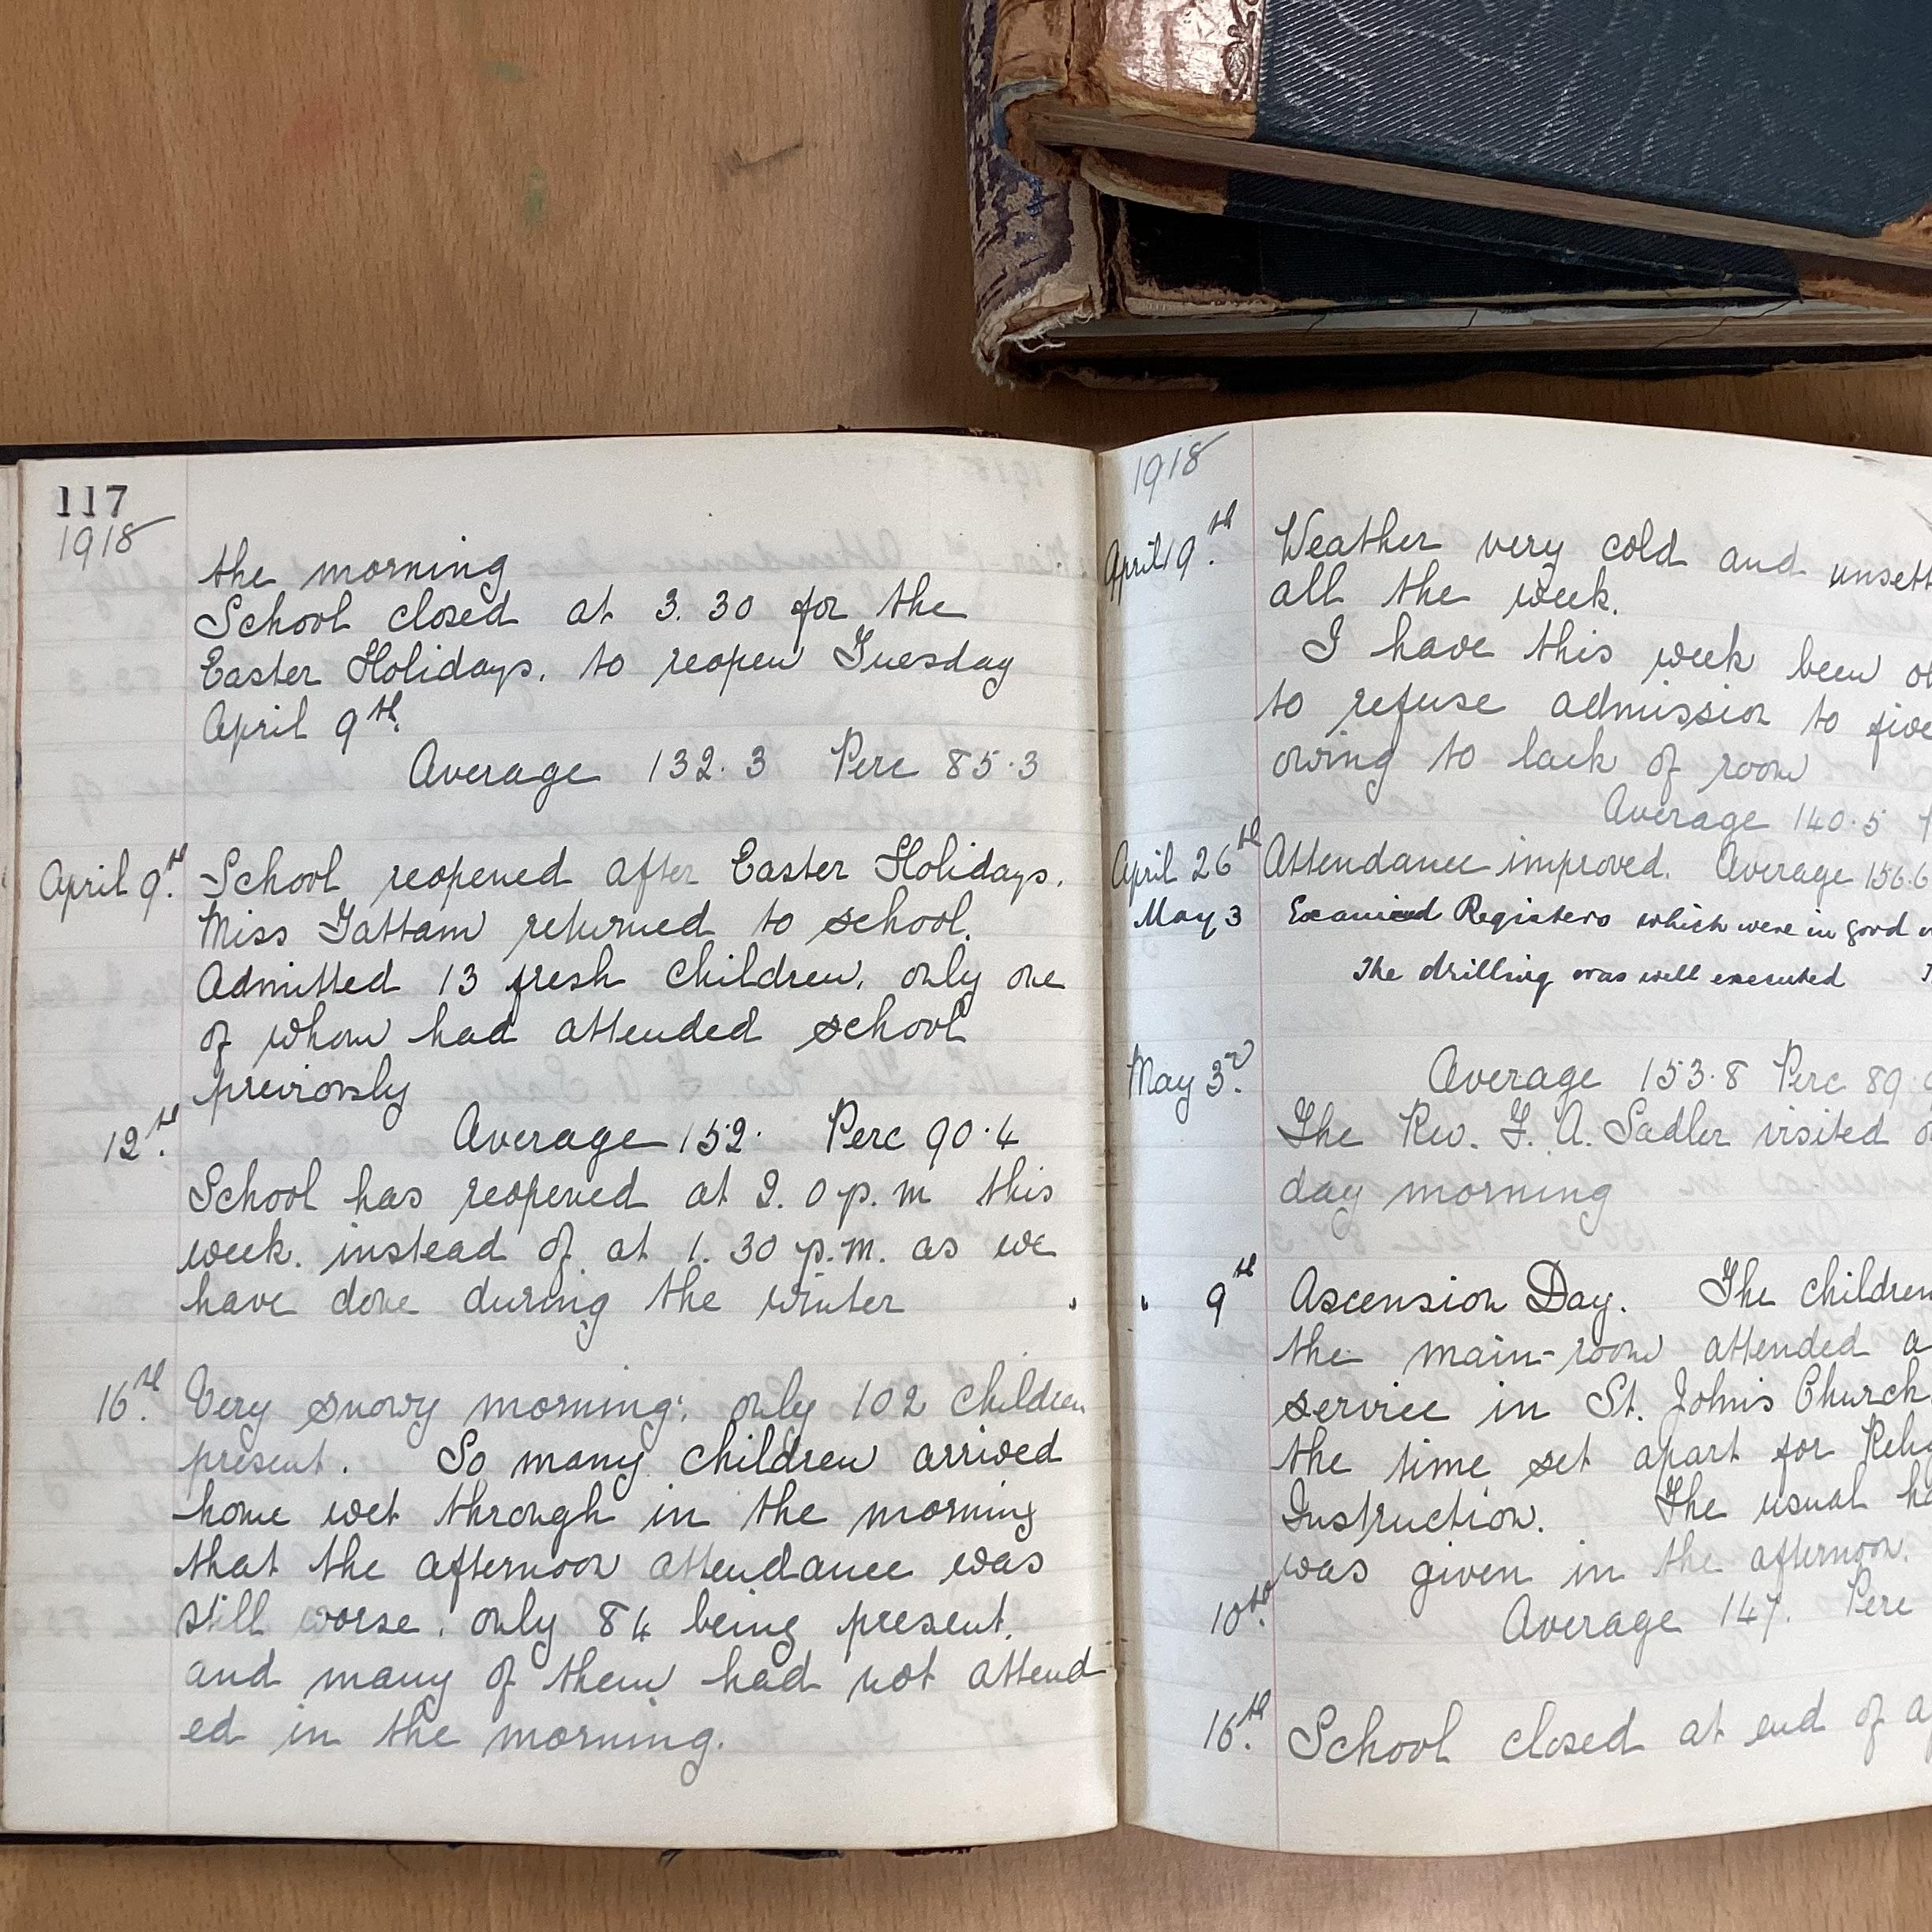 117
1918
the morning
School closed at 3.30 for the
Easter Holidays. to reopen Tuesday
April 9th.
Average 132.3 Perc 85.3
April 9th. School reopened after Easter Holidays.
Miss Tattam returned to school.
Admitted 13 fresh children, only one
of whom had attended school
previously
12th. Average 152. Perc 90.4
School has reopened at 2.0 p.m this
week. instead of at 1.30 p.m. as we
have done during the winter
16th. Very snowy morning; only 102 children
present. So many children arrived
home wet through in the morning
that the afternoon attendance was
still worse, only 84 being present.
and many of them had not attend
ed in the morning.
1918
April 19th. Weather very cold and
all the week.
I have this week been
to refuse admission to five
owing to lack of room
Average 140.5
April 26th Attendance improved. Average 156.6
May 3 Examined Registers which were in good
The drilling was well executed
May 3rd. Average 153.8 Perc 89.
The Rev. F. A. Sadler visited
day morning
" 9th Ascension Day. The children
the main-room attended a
service in St. John's Church
the time set apart for
Instruction. The usual
was given in the afternoon.
10th. Average 147. Perc
16th. School closed at end of